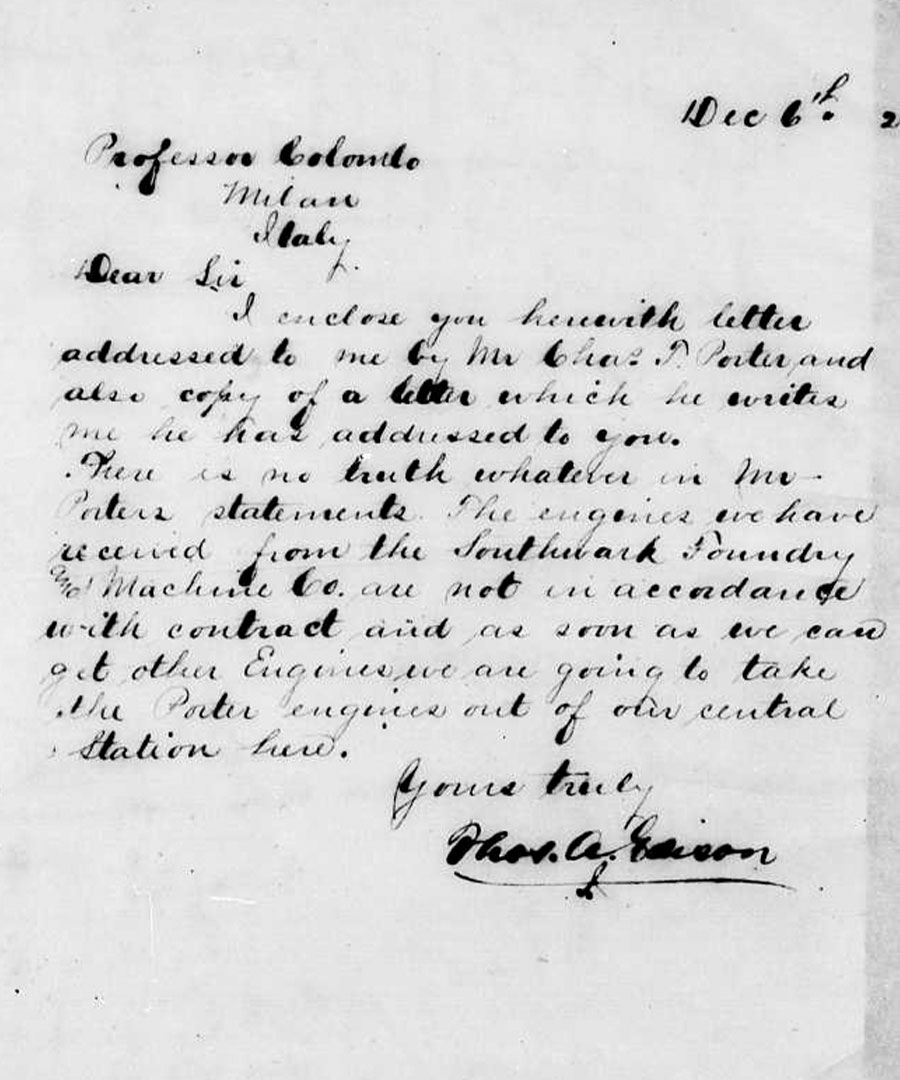 Dec 6th. 2
Professor Colombo
Milan
Italy.
Dear Sir
I enclose you herewith letter
addressed to me by Mr Chas. T. Porter, and
also copy of a letter which he writes
me he has addressed to you.
There is no truth whatever in Mr
Porters statements. The engines we have
received from the Southwark Foundry
and Machine Co. are not in accordance
with contract and as soon as we can
get other Engines, we are going to take
the Porter engines out of our central
Station here.
Yours truly
Thos. A. Edison
I